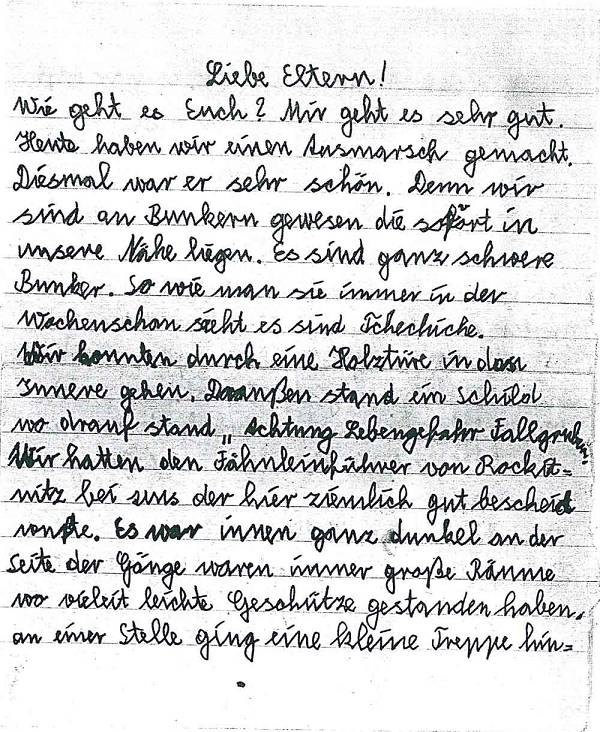 Liebe Eltern!
Wie geht es Euch? Mir geht es sehr gut.
Heute haben wir einen Ausmarsch gemacht.
Diesmal war er sehr schön. Denn wir
sind an Bunkern gewesen die sofort in
unsere Nähe liegen. Es sind ganz schwere
Bunker. So wie man sie immer in der
Wochenschau sieht es sind Tchechiche.
Wir konnten durch eine Holztüre in das
Innere gehen. Draußen stand ein Schild
wo drauf stand „Achtung Lebengefahr Fallgruben"
Wir hatten den Fähnleinführer von
nitz bei uns der hier ziemlich gut bescheid
wußte. Es war innen ganz dunkel an der
Seite der Gänge waren immer große Räume
wo vieleit leichte Geschütze gestanden haben.
an einer Stelle ging eine kleine Treppe hin=